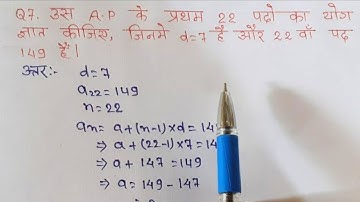 Q7. उस A.P के प्रथम 22 पदों का योग
ज्ञात कीजिए, जिनमें d=7 है और 22 वाँ पद
149 है।
उत्तर:- d=7
a₂₂=149
n=22
an= a+(n-1)×d=14
⇒ a+(22-1)×7=14
⇒ a+ 147=149
⇒ a= 149-147